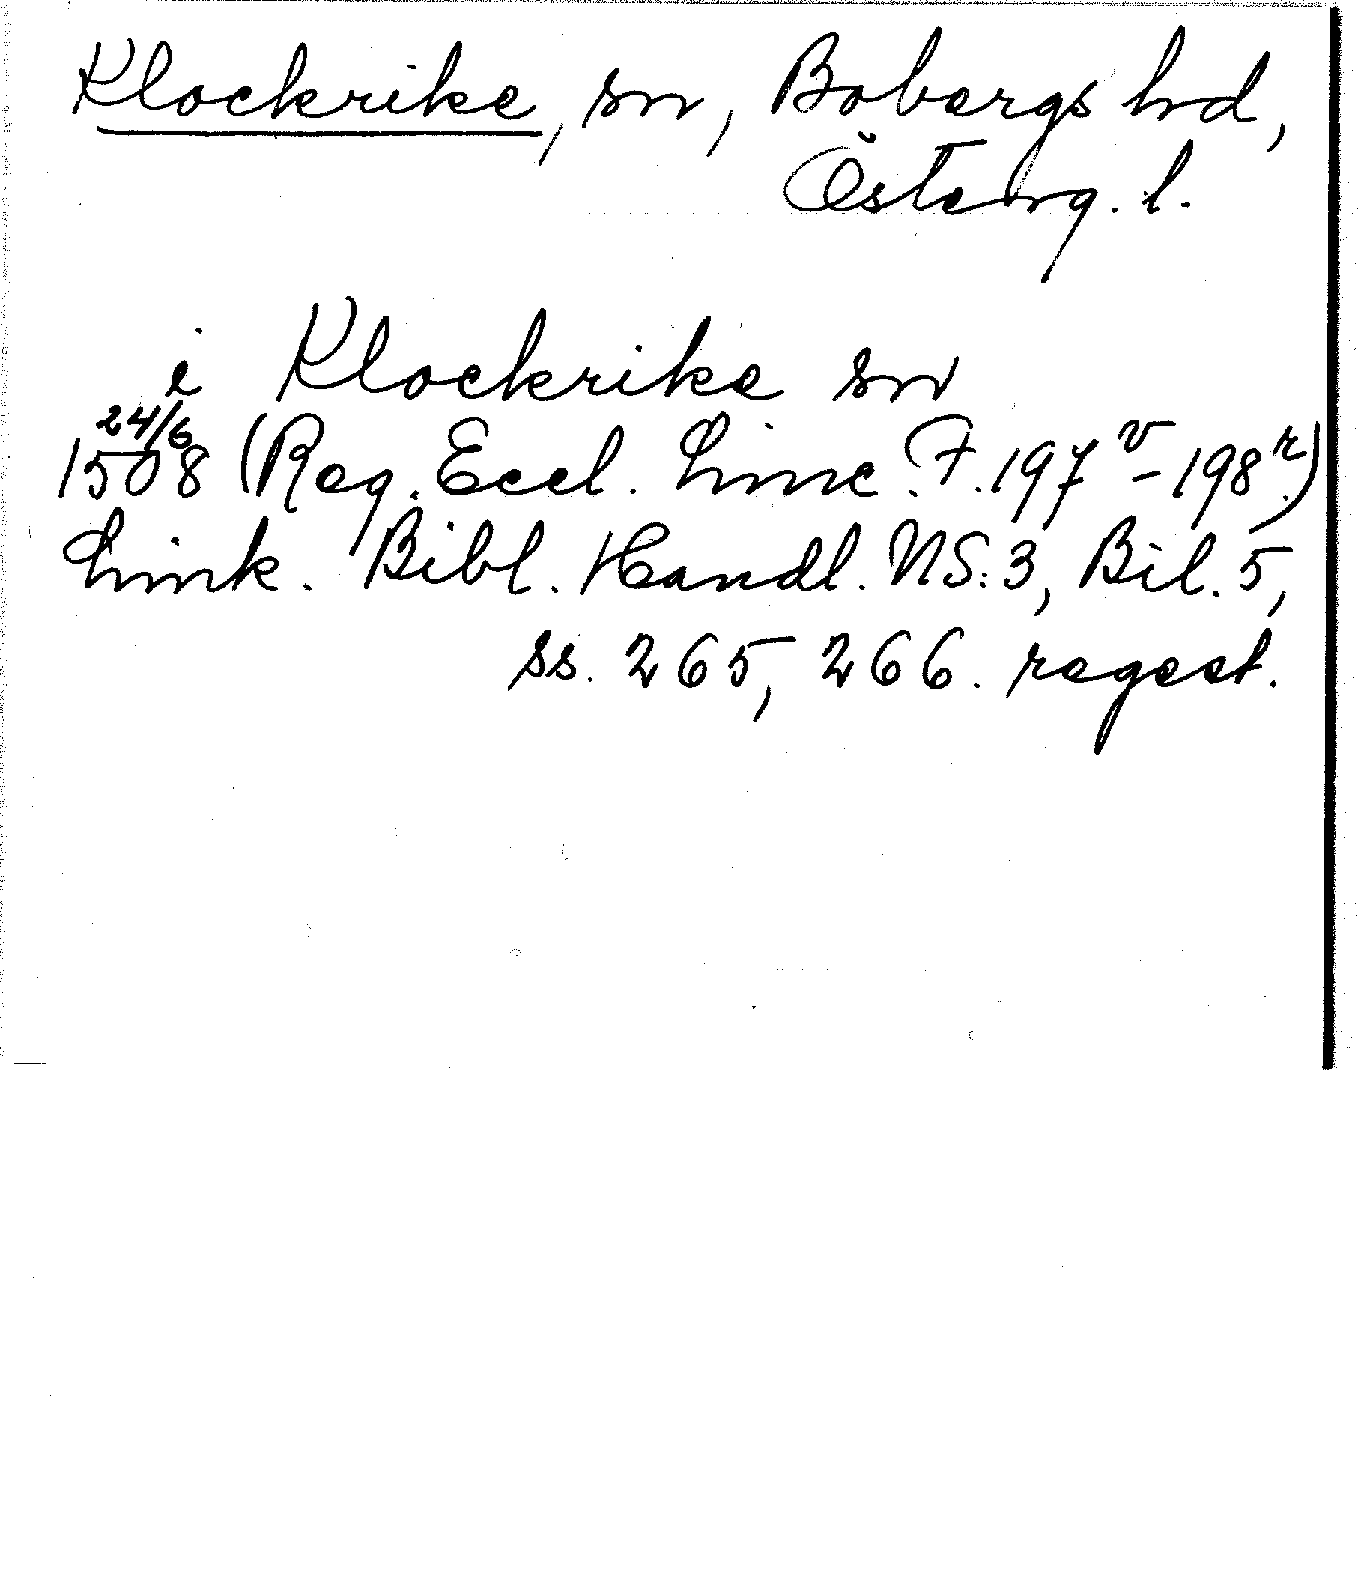 Klockrike, sn, Bobergs hd,
Österg. l.
i Klockrike sn
24/6
1508 (Reg. Eccl. Linc. F. 197v-198r)
Link. Bibl. Handl. NS:3, Bil. 5,
ss. 265, 266. regest.